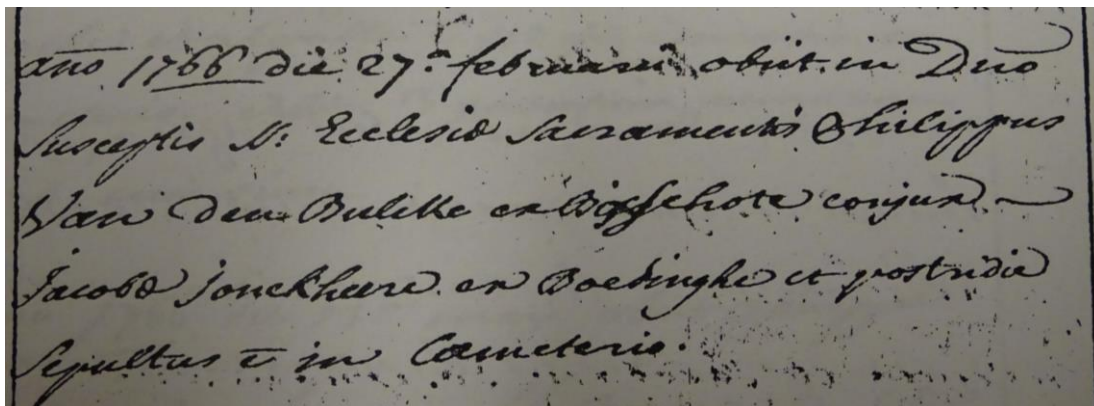 año 1766 die 27.a februarii obiit in Dno
susceptis N: Ecclesiæ Sacramentis Philippus
Van den Bulcke ex Bixschote conjux
Jacobæ Jonckheere ex Boesinghe et postridie
Sepultus ē in Cœmeterio.